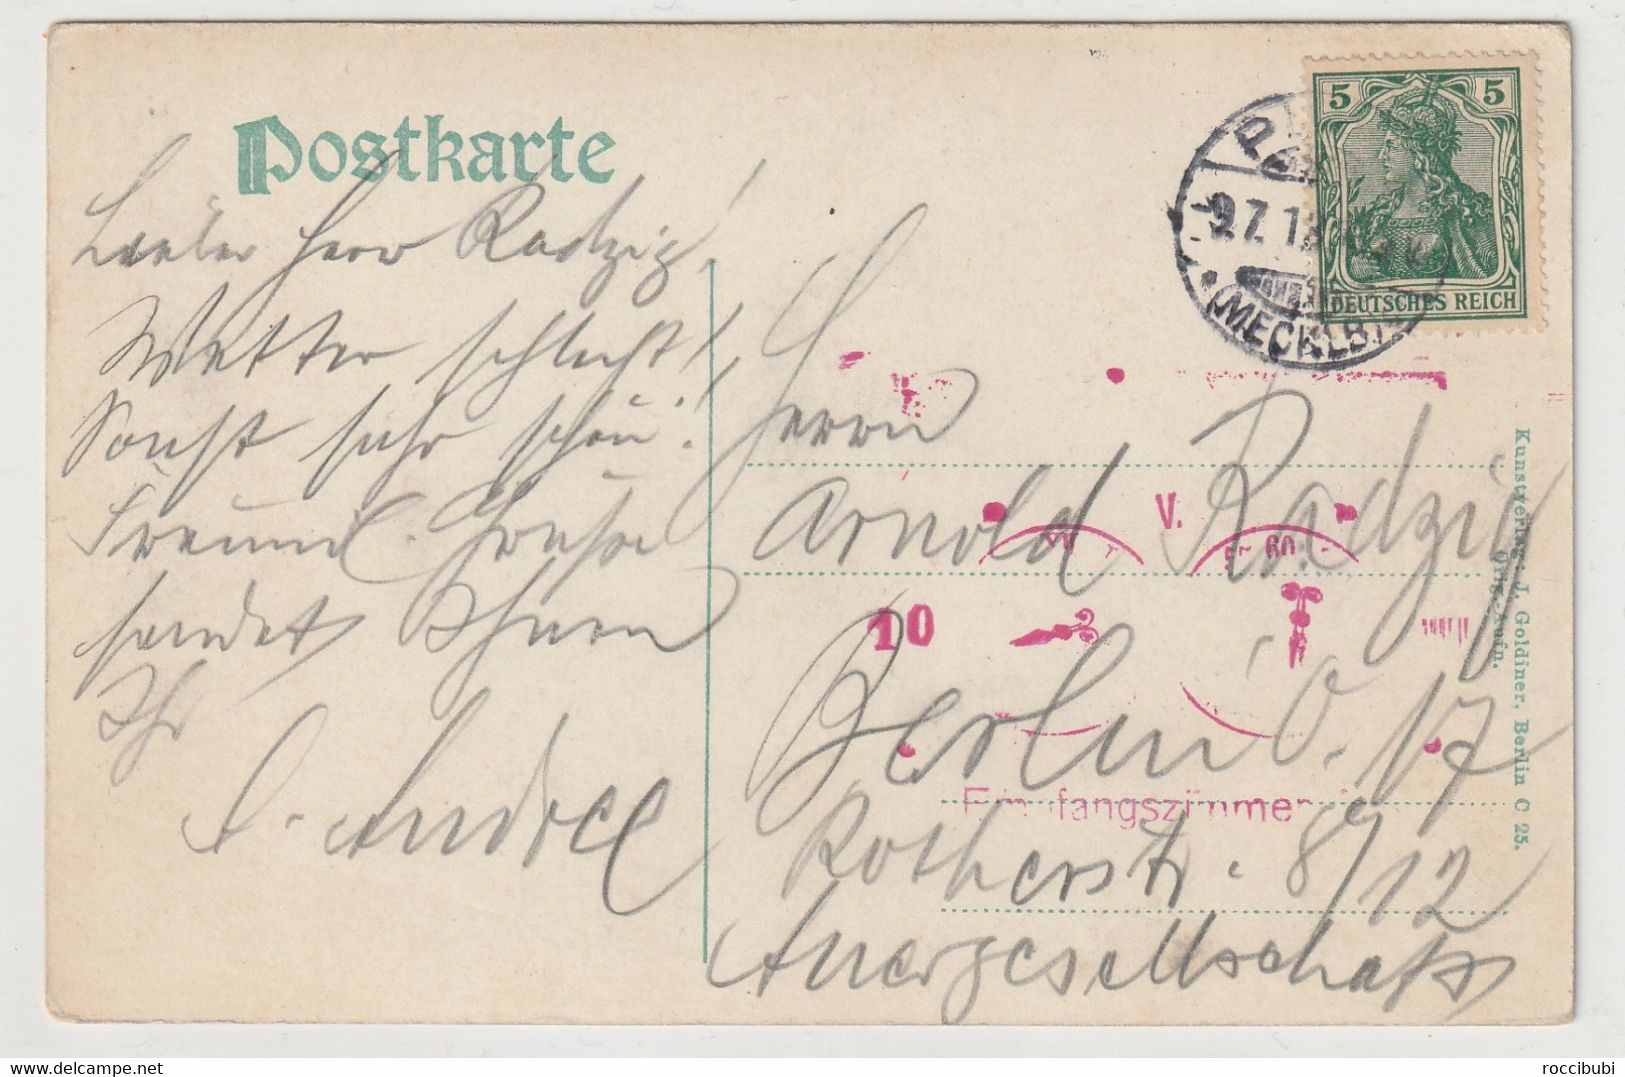 Postkarte
Lieber Herr Radzig!
Wetter schlecht!
Sonst sehr schön!
Freundl. Grüße
sendet Ihnen
Ihr
Andree
5 5
DEUTSCHES REICH
9.7.1
(MECKLB)
Herrn
Arnold Radzig
V.
10
Berlin O. 17
Empfangszimmer
Rotherstr. 8/12
Auergesellschaft
Kunstverlag J. Goldiner, Berlin C 25.
Orig.-Aufn.
delcampe.net
roccibubi